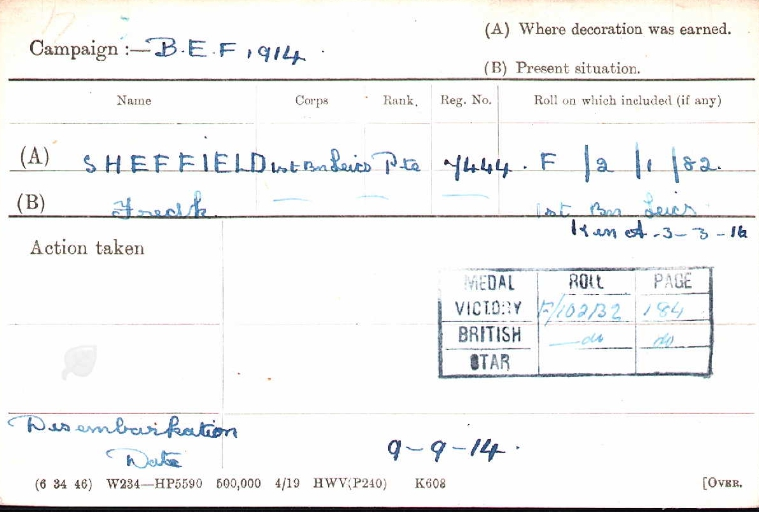 (A) Where decoration was earned.
Campaign :— B.E.F. 1914.
(B) Present situation.
Name Corps Rank. Reg. No. Roll on which included (if any)
(A) SHEFFIELD 1st Bn Leics Pte 7444. F /2 /1 /82.
(B) Fredk — — — 1st Bn Leics
K in A -3-3-16
Action taken
MEDAL ROLL PAGE
VICTORY F/102B2 184
BRITISH —do do
STAR
Disembarkation
Date 9-9-14.
(6 34 46) W234—HP5590 500,000 4/19 HWV(P240) K608 [OVER.